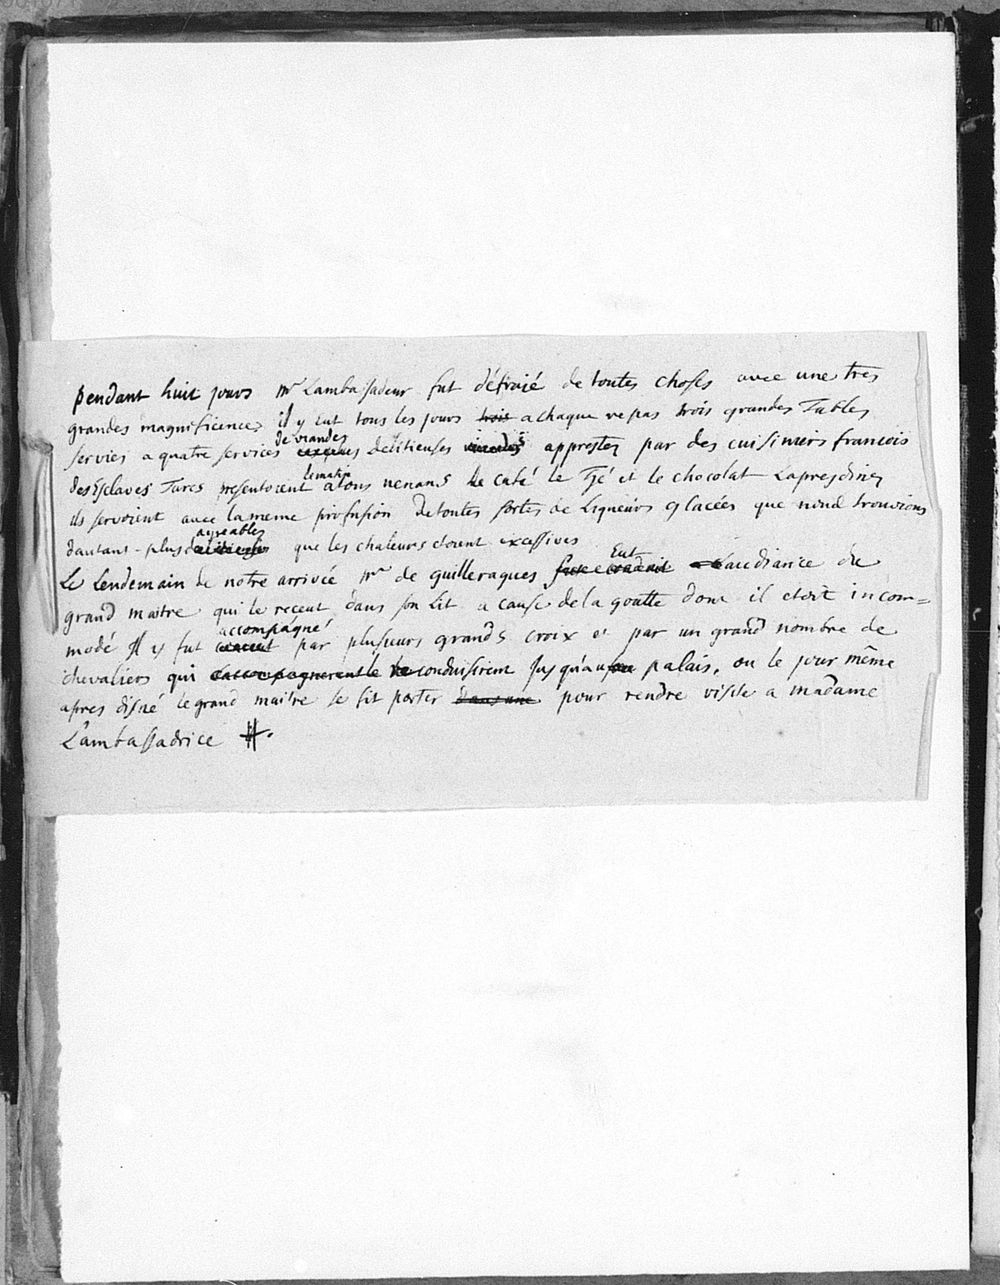 pendant huit jours Mr Lambassadeur fut défraié de toutes choses avec une tres
grandes magnificences il y eut tous les jours trois a chaque repas trois grandes Tables
servies a quatre services de viandes delitieuses apprestez par des cuisiniers francois
des Esclaves Turcs presentoient le matin a tous venans le café le Tjé et le chocolat Lapresdiner
ils servoient avec la meme profusion de toutes sortes de Liqueurs glacées que nous trouvions
dautant-plus agreables que les chaleurs etoient excessives
Le Lendemain de notre arrivée Mr de guilleragues Eut audiance du
grand maitre qui le receut dans son Lit a cause de la goutte dont il etoit incom=
modé Il y fut accompagné par plusieurs grands croix et par un grand nombre de
chevaliers qui le conduisirent jusqu'au palais, ou le jour même
apres disné le grand maitre se fit porter dans une pour rendre visite a madame
L'ambassadrice #.